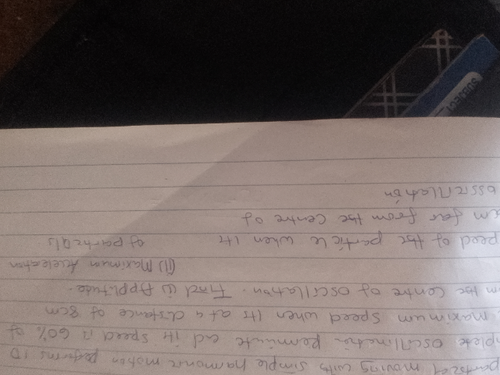 particle moving with simple harmonic motion performs 10
plete oscillation perminute and its speed is 60% of
maximum speed when its at a distance of 8cm
om the centre of oscillation. Find (i) Applitude.
(ii) Maximum Acceleration
of particals
peed of the particle when its
cm far from the centre of
ossicillation